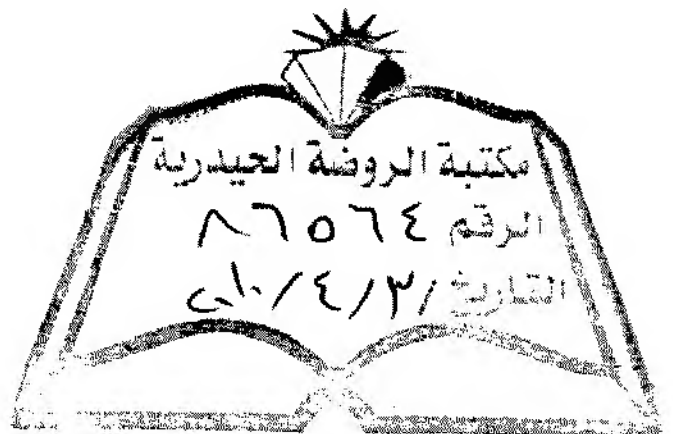 مكتبة الروضة الحيدرية
الرقم ٨٦٥٦٤
التاريخ /٣/٤/٢٠١٠